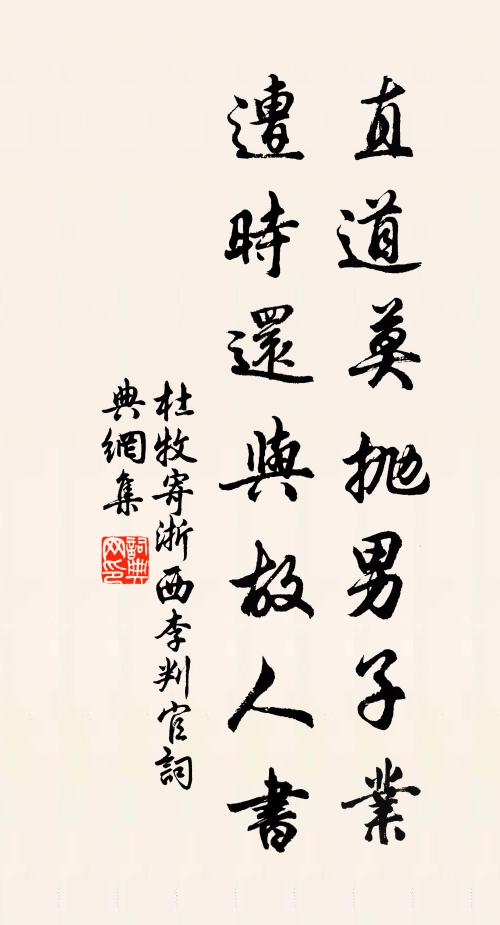 直道莫拋男子業
遭時還與故人書
杜牧寄浙西李判官詞
典網集
詞典
网印